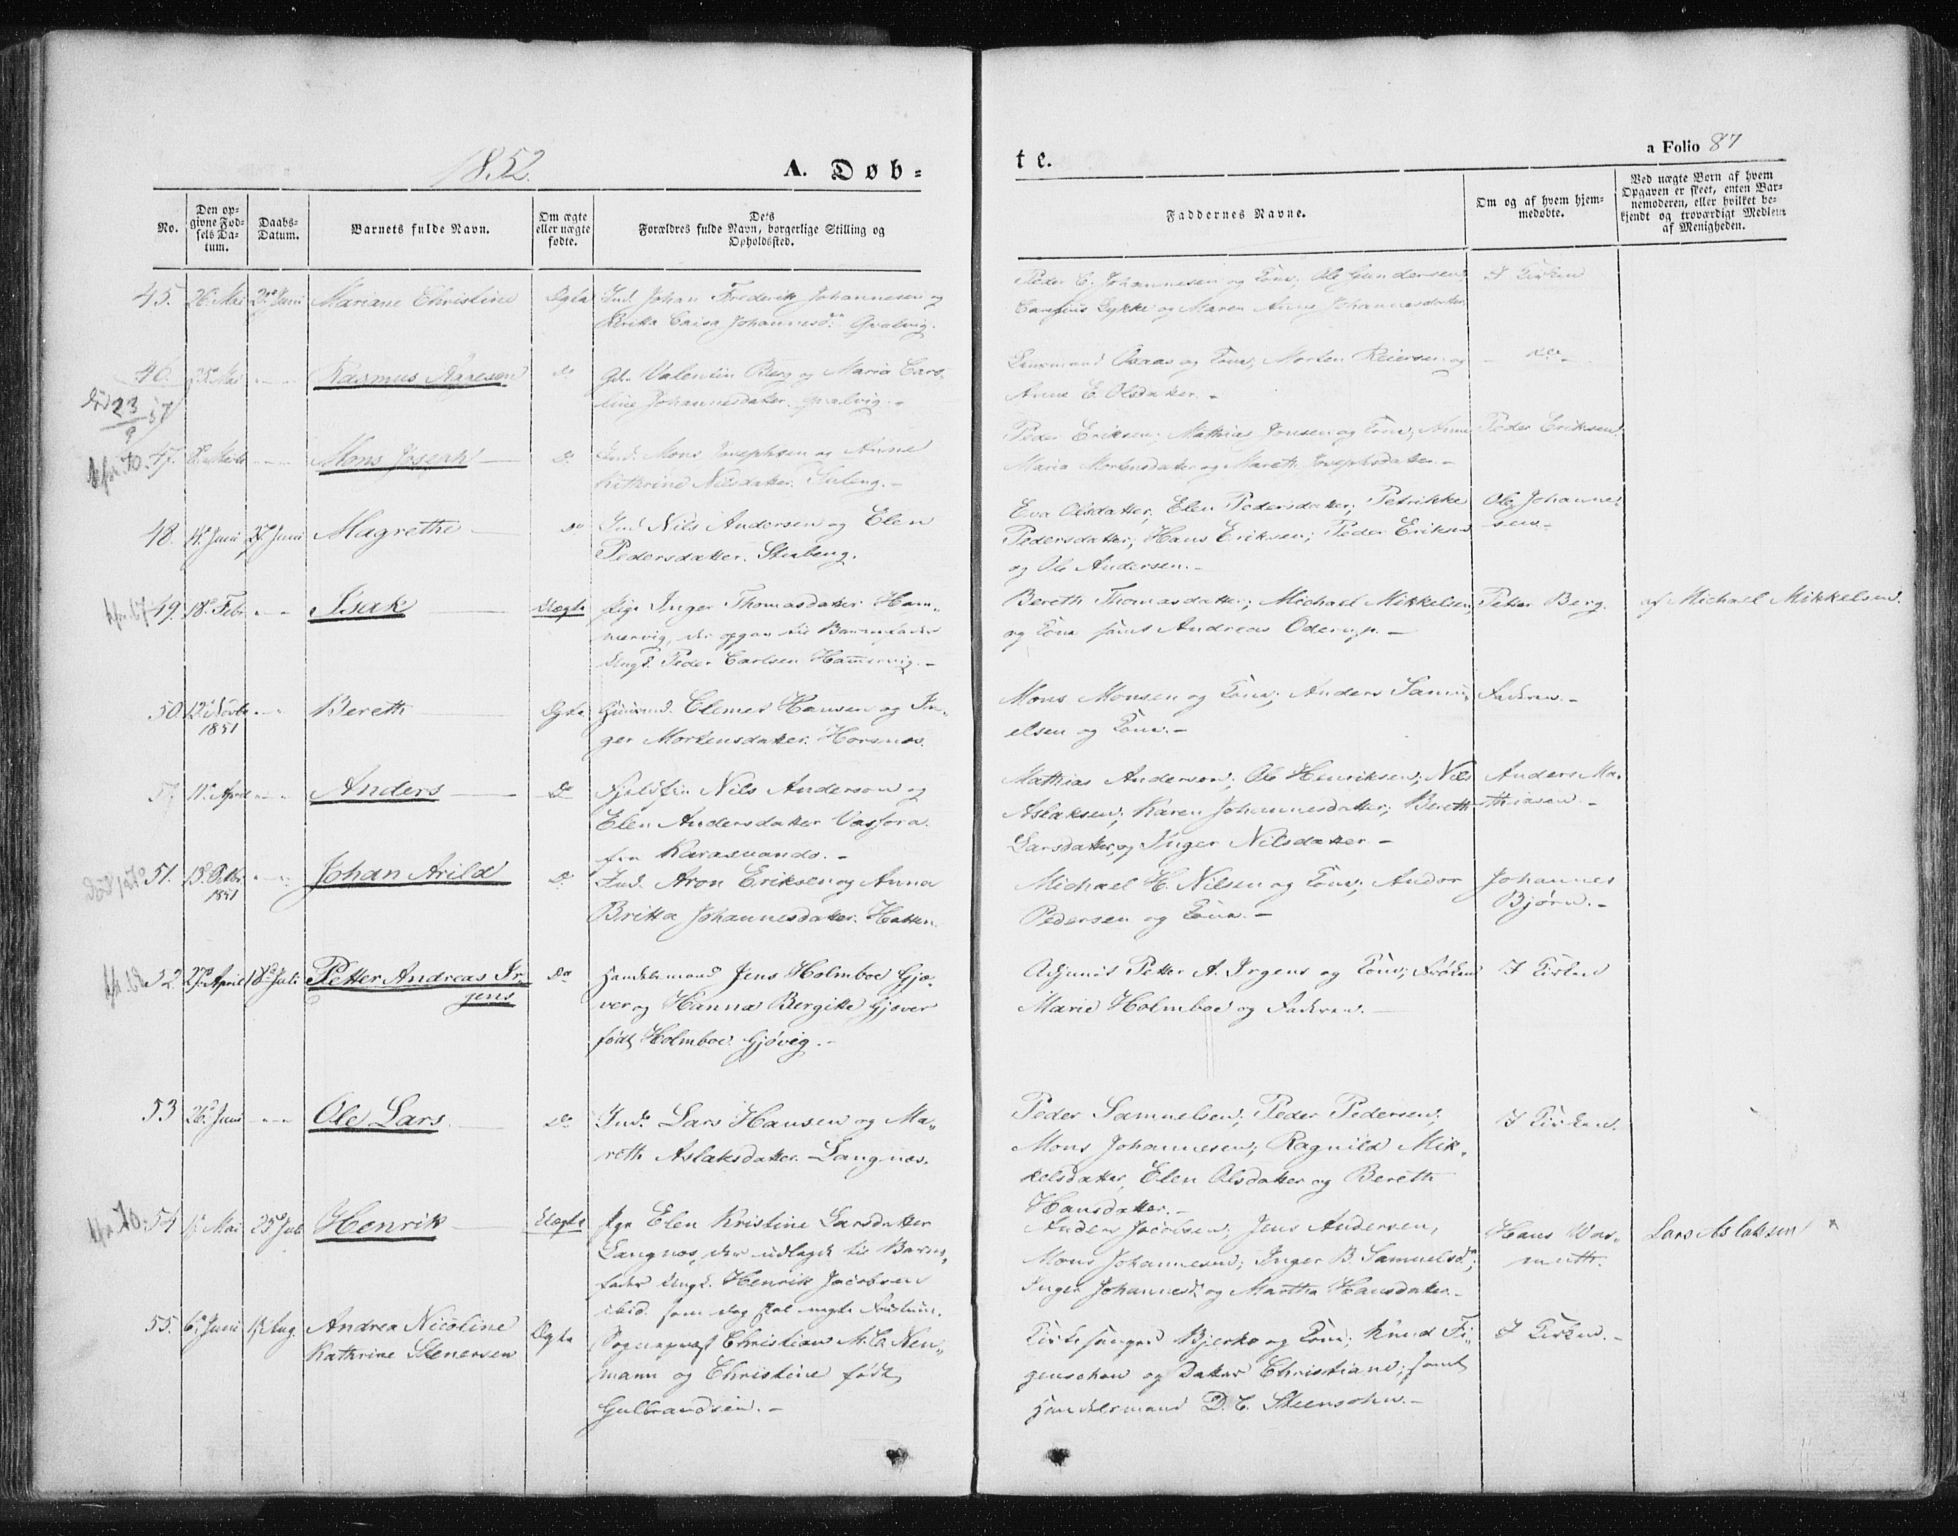 1852.
A. Døb-
te.
a Folio 87
No.
Den op-
givne Fød-
sels Da-
tum.
Daabs-
Datum.
Barnets fulde Navn.
Om ægte
eller uægte
fødte.
Dets
Forældres fulde Navn, borgerlige Stilling og
Opholdssted.
Faddernes Navne.
Om og af hvem hjem-
medøbte.
Ved uægte Børn af hvem
Opgaven er skeet, enten Bar-
nemoderen, eller hvilket be-
kjendt og troværdigt Medlem
af Menigheden.
45. 26. Mai Juni Mariane Christine Ægte Ind. Johan Frederik Johannesen og
Caisa Johannesd. Qvalvig.
Peder C. Johannesen og Kone, Ole Gundersen, I Kirken
Lykke og Maren Anne Johannesdatter
46. 25. Mai Rasmus Aagesen Do Valentin Berg og Maria Caro-
line Johannesdatter. Qvalvig.-
Lensmand Aaas og Kone, Morten Reiersen og - do -
Anne E. Olsdatter.-
død 23/9 57
47. Mons Joseph Do Ind. Mons Josephsen og Anne
Kathrine Nilsdatter.
Peder Eriksen; Mathias Jonsen og Kone, Anne Peder Eriksen
Maria Mortensdatter og Mareth Josephsdatter.-
48. 14. Juni 27. Juni Magrethe Do Ind. Nils Andersen og Elen
Pedersdatter. Stubeng.
Eva Olsdatter, Elen Pedersdatter, Petrikke Ole Johanne-
Pedersdatter, Hans Eriksen; Peder Eriksen sen.-
og Ole Andersen.-
49. 18. Febr. Isak Uægte Pige Inger Thomasdatter Ham-
mervig, der opgav til Barnefader
Ungk. Peder Carlsen Hammervig.-
Bereth Thomasdatter; Michael Mikkelsen Petter Berg. af Michael Mikkelsen.
og Kone samt Andreas Oderup.-
50. 12. Novbr. 1851 Bereth Ægte Clemet Hansen og In-
ger Mortensdatter. Horsnæs.
Mons Monsen og Kone; Anders Samu- Faderen.-
elsen og Kone.-
51. 11. April Anders Do Fjeldfin Nils Anderson og
Elen Andersdatter Vasfora
fra Karasuando.-
Mathias Anderson; Ole Henriksen; Nils Anders Ma-
Aslaksen; Karen Johannesdatter; Bereth thiasen.-
Larsdatter og Inger Nilsdatter.-
51. 13. Octbr. 1851 Johan Arild Do Ind. Aron Eriksen og Anna
Britta Johannesdatter. Hatten.
Michael H. Nilsen og Kone; Andor Johannes
Pedersen og Kone.- Bjørn.-
52 27. April 18. Juli Petter Andreas Ir-
gens Do Handelsmand Jens Holmboe Gjæ-
ver og Hanna Bergitte Gjæver
født Holmboe. Gjøvig.-
Adjunct Petter A. Irgens og Kone; Frøken I Kirken
Marie Holmboe og Faderen.-
53 26. Juni Ole Lars Do Ind. Lars Hansen og Ma-
reth Aslaksdatter. Langnæs.
Peder Samuelsen; Peder Pedersen; I Kirken.
Mons Johannesen; Ragnild Mik-
kelsdatter, Elen Olsdatter og Bereth
Hansdatter.-
54 1. Mai 25. Juli Henrik Uægte Pige Elen Kristine Larsdatter
Langnæs, der udlagde til Barne-
fader Ungk. Henrik Jacobsen
ibid. som dog skal nægte
Anders Jacobsen; Jens Andersen, Hans Was- Lars Aslaksen
Mons Johannesen; Inger B. Samuelsd.; muth.
Inger Johannesd. og Martha Hansdatter.-
55. 6. Juni 1. Aug. Andrea Nicoline
Kathrine Stenersen Ægte Sognepræst Christian M. C. Neu-
mann og Christine født
Gulbrandsen.-
Kirkesanger Bjerko og Kone; Knud Fi- I Kirken.-
genschou og Datter Christiane; samt
Handelsmand D. C. Steensohn.-